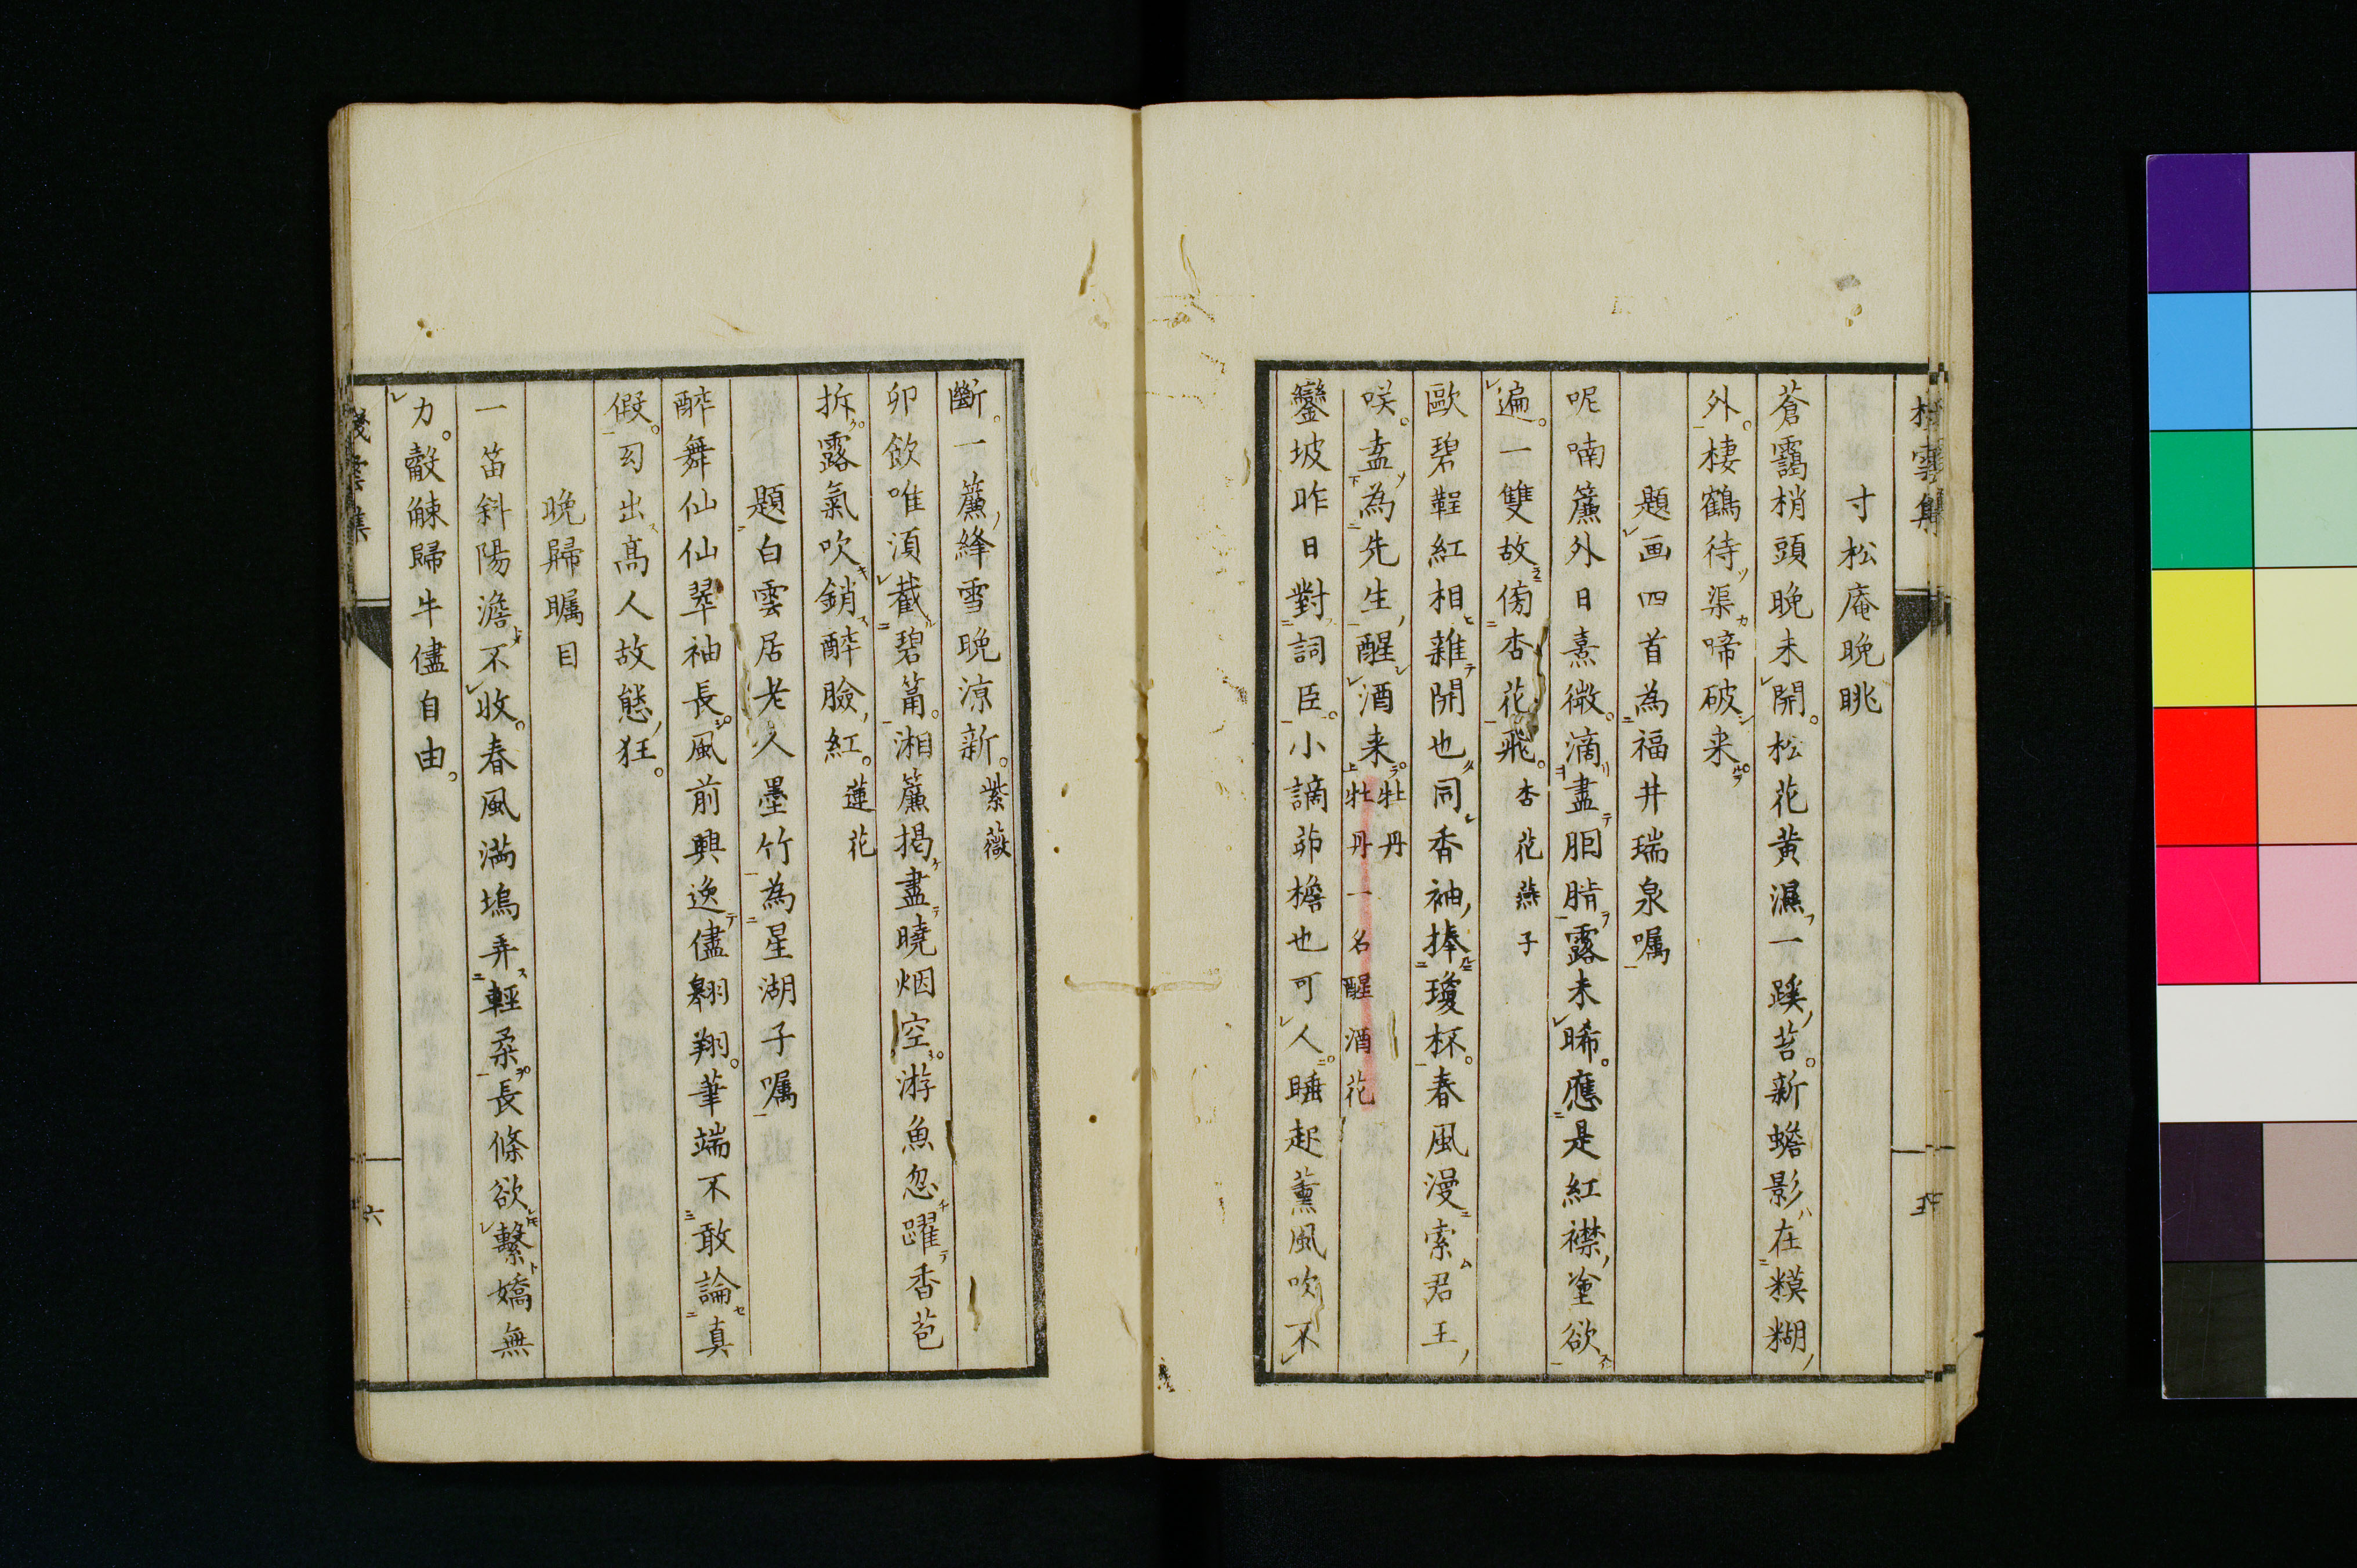 寸松庵晩眺
蒼靄梢頭晩未開。松花黄濕一蹊苔。新蟾影在糢糊
外。棲鶴待渠啼破来。
題画四首為福井瑞泉嘱
呢喃簾外日熹微。滴盡胭脂露未晞。應是紅襟塗欲
遍。一雙故傍杏花飛。杏花燕子
歐碧鞓紅相雜開也同香袖捧瓊杯。春風漫索君王
咲。盍為先生醒酒来。牡丹
牡丹一名醒酒花
鑾坡昨日對詞臣。小謫茆檐也可人。睡起薫風吹不
断。一簾絳雪晩涼新。紫薇
卯飲唯湏截碧筩。湘簾掲盡曉烟空。游魚忽躍香苞
拆。露氣吹銷醉臉紅。蓮花
題白雲居老人墨竹為星湖子嘱
醉舞仙仙翠袖長。風前興逸儘翱翔。筆端不敢論真
假。幻出高人故態狂。
晩歸矚目
一笛斜陽澹不收。春風満塢弄輕柔。長條欲繫嬌無
力。觳觫歸牛儘自由。
五
六